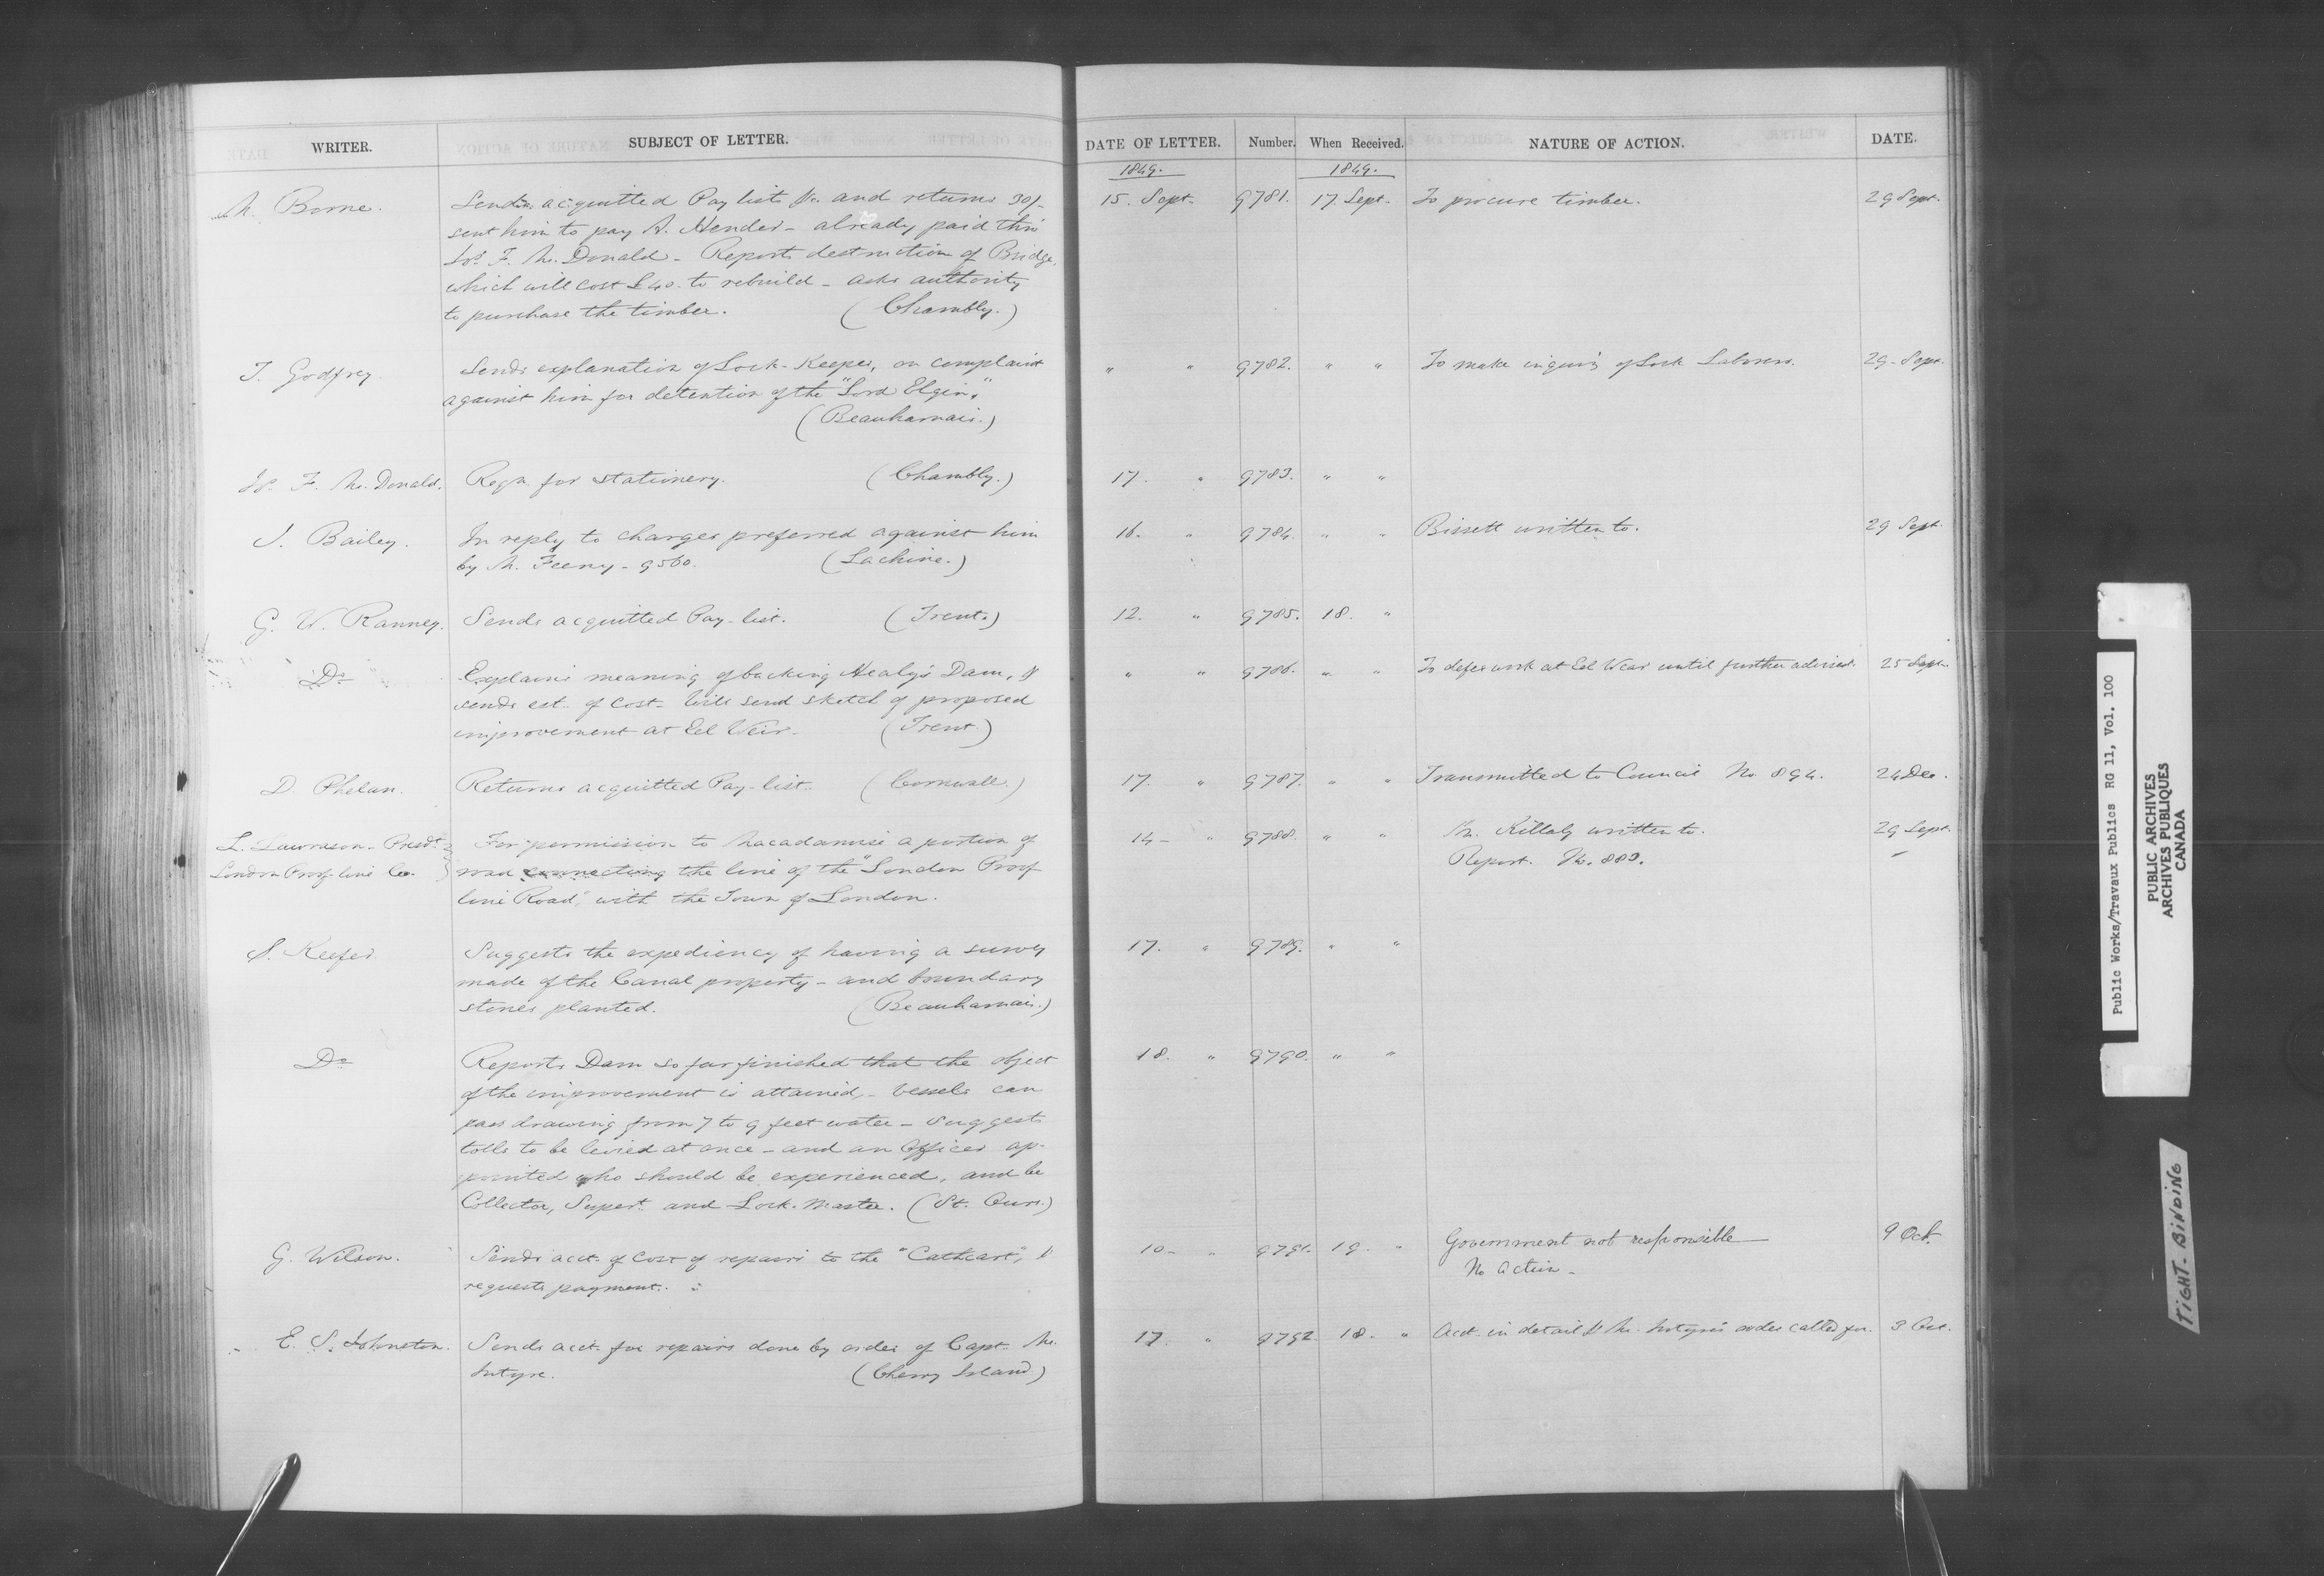 WRITER.	SUBJECT OF LETTER.	DATE OF LETTER.	Number.	When Received.	NATURE OF ACTION.	DATE.
1849.	1849.
M. Borne.	Sends acquitted Pay list &c. and returns 30/-	15. Sept.	9781.	17. Sept.	To procure timber.	29 Sept.
sent him to pay A. Hender - already paid thro'
Js. F. Mc. Donald - Reports destruction of Bridge,
which will cost £40. to rebuild - asks authority
to purchase the timber. (Chambly.)
J. Godfrey.	Sends explanation of Lock-Keeper, on complaint	"	"	9782.	"	"	To make inquiry of Lock Laborers.	29 Sept.
against him for detention of the "Lord Elgin."
(Beauharnais.)
Js. F. Mc. Donald.	Reqn. for stationery. (Chambly.)	17.	"	9783.	"	"
J. Bailey.	In reply to charges preferred against him	16.	"	9784.	"	"	Bissett written to.	29 Sept.
by M. Feeny - 9560. (Lachine.)
G. W. Ranney.	Sends acquitted Pay-list. (Trent.)	12.	"	9785.	18.	"
Do	Explains meaning of backing Healy's Dam, &	"	"	9786.	"	"	To defer work at Eel Wear until further advised.	25 Sept.
sends est. of cost - Will send sketch of proposed
improvement at Eel Weir. (Trent.)
D. Phelan.	Returns acquitted Pay-list. (Cornwall.)	17.	"	9787.	"	"	Transmitted to Council No. 894.	24 Dec.
L. Lawrason - Presdt.	For permission to Macadamise a portion of	14 -	"	9788.	"	"	Mr. Killaly written to.	29 Sept.
London Proof line Co.	road connecting the line of the "London Proof	Report. No. 883.
line Road," with the Town of London.
S. Keefer.	Suggests the expediency of having a survey	17.	"	9789.	"	"
made of the Canal property - and boundary
stones planted. (Beauharnais.)
Do	Reports Dam so far finished that the object	18.	"	9790.	"	"
of the improvement is attained, - vessels can
pass drawing from 7 to 9 feet water - Suggests
tolls to be levied at once - and an Officer ap-
pointed who should be experienced, and be
Collector, Supert. and Lock-Master. (St. Ours.)
G. Wilson.	Sends acct. of cost of repairs to the "Cathcart," &	10 -	"	9791.	19.	"	Government not responsible	9 Oct.
requests payment.	No action -
E. S. Johnston.	Sends acct. for repairs done by order of Capt. Mc.	17.	"	9792	18.	"	Acct. in detail & Mc. Intyre's order called for.	3 Oct.
Intyre. (Cherry Island)
Public Works/Travaux Publics RG 11, Vol. 100
PUBLIC ARCHIVES
ARCHIVES PUBLIQUES
CANADA
TIGHT-BINDING